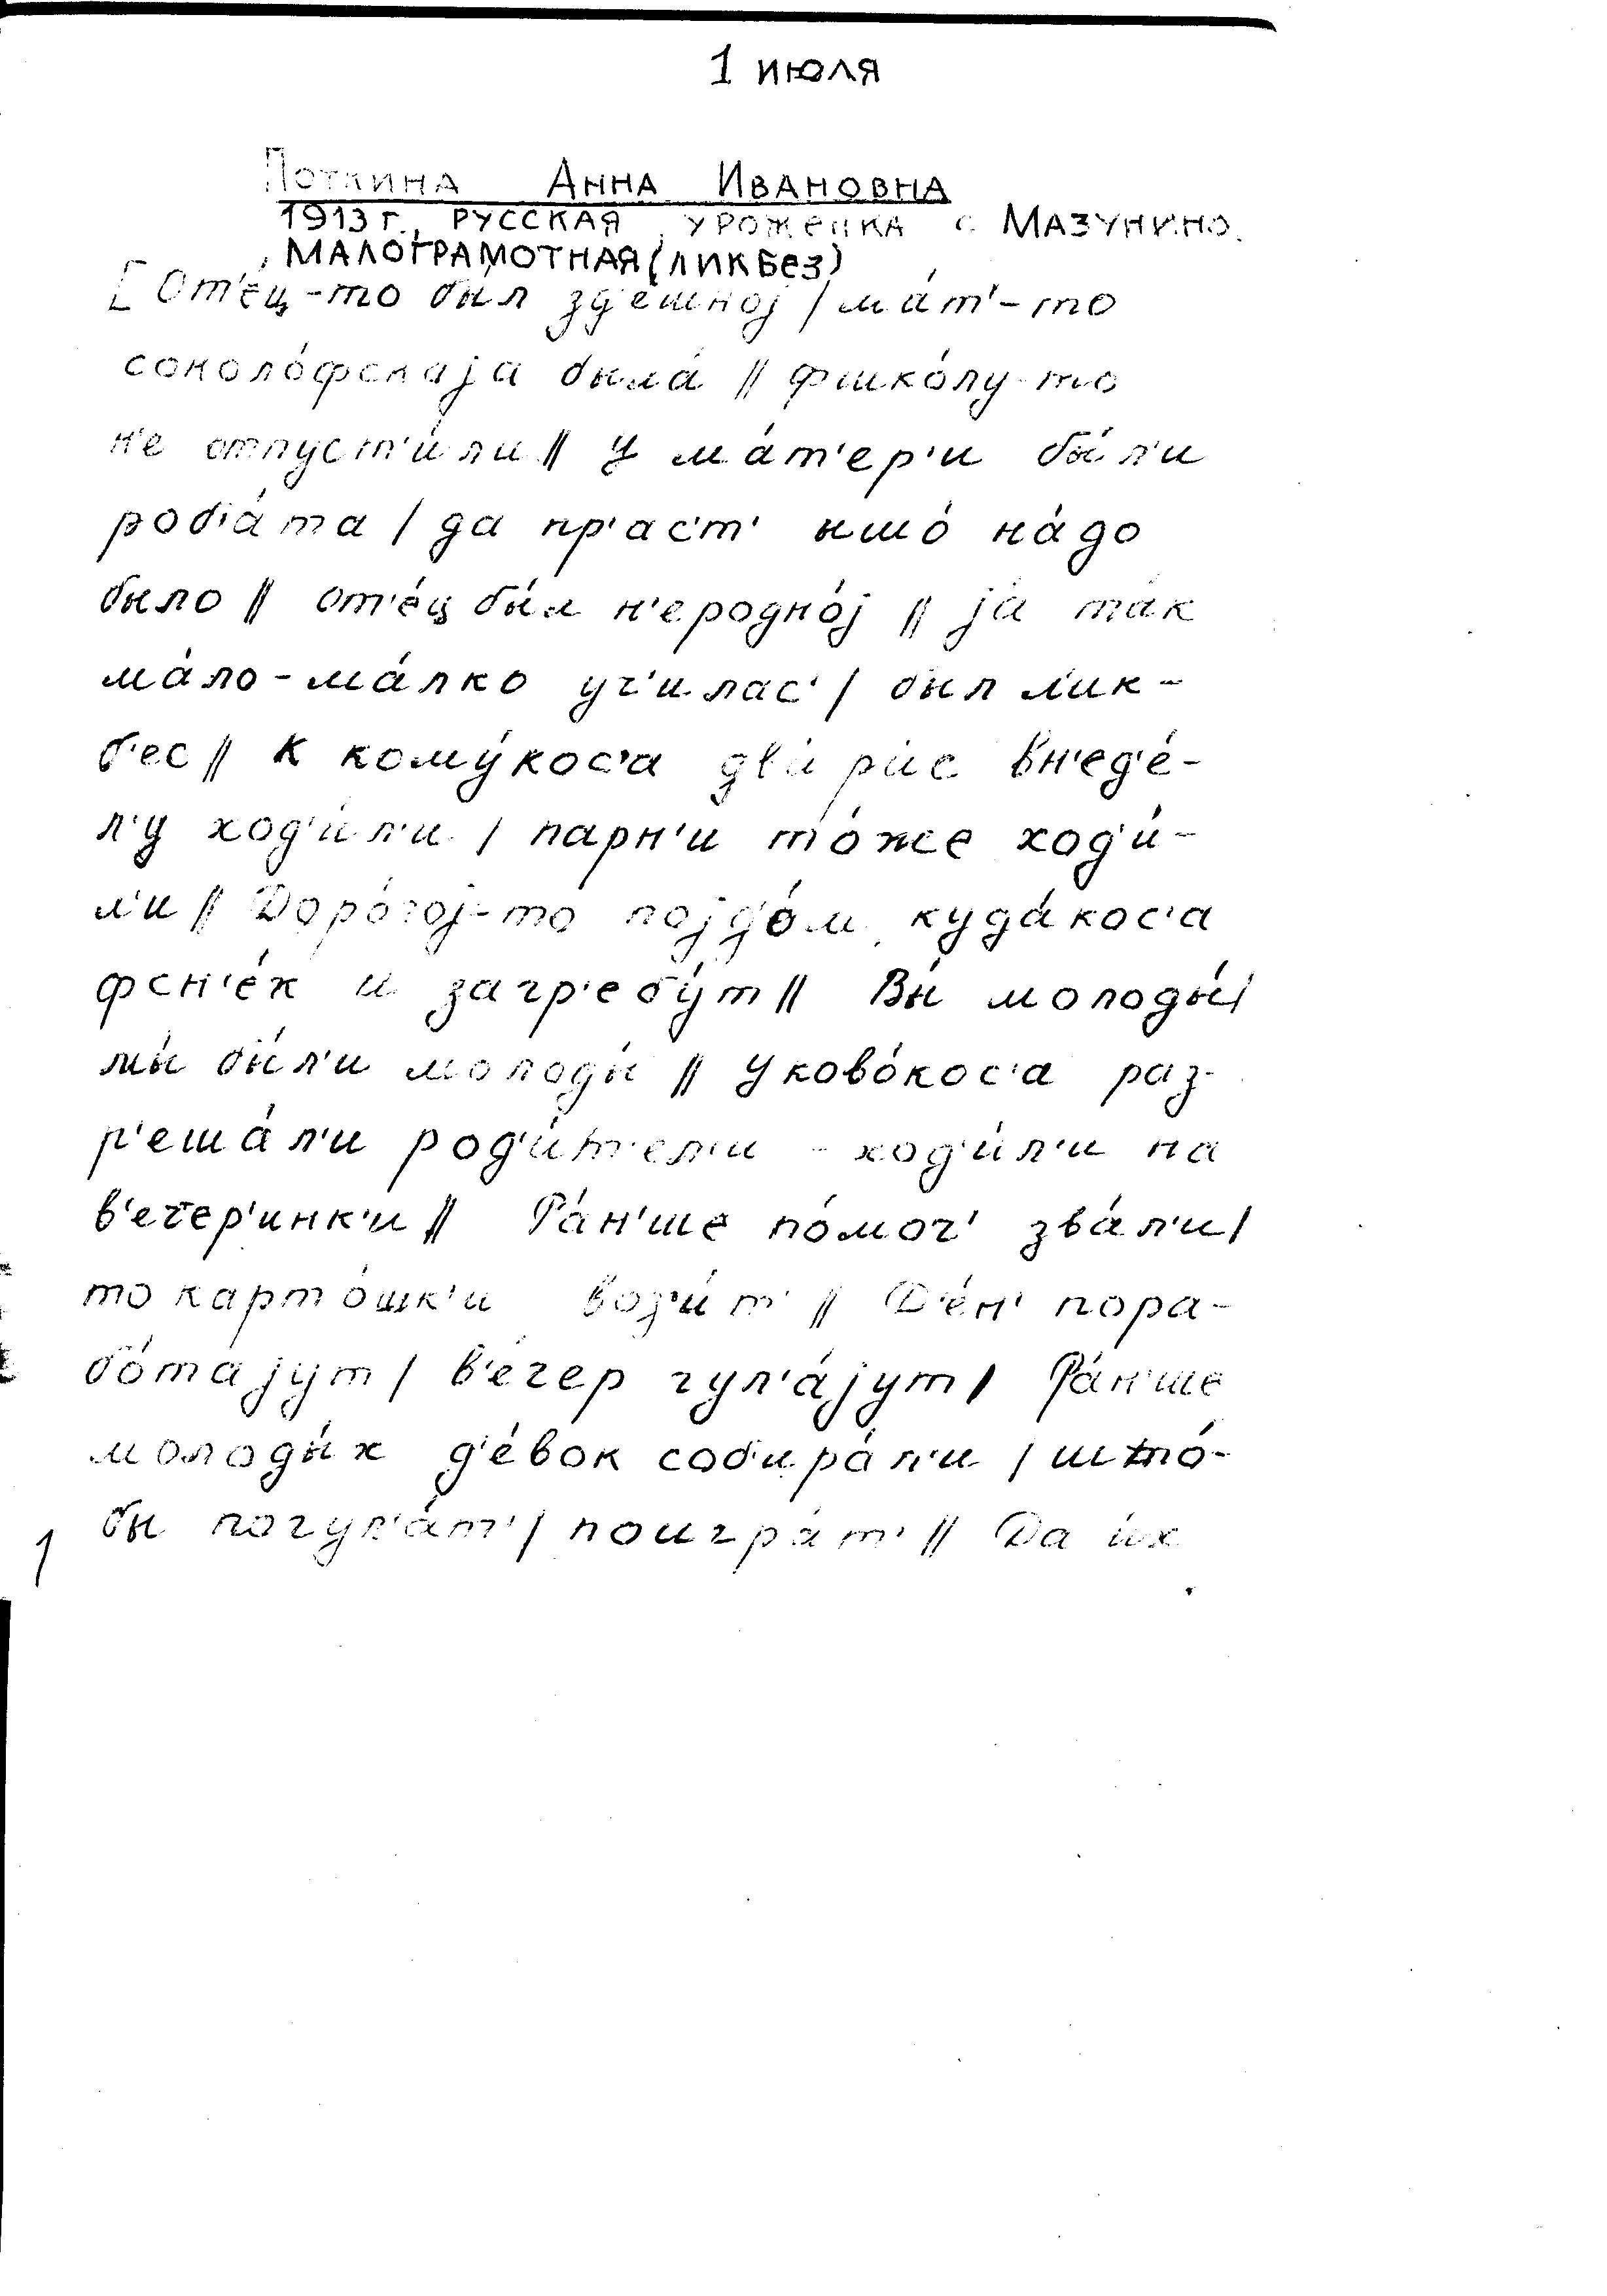 1 июля
Поткина Анна Ивановна
1913 г., русская, уроженка с. Мазунино.
, малограмотная (ликбез)
[От'е́ц-то бы́л зд'е́шној / ма́т'-то
соколо́фскаја была́ // фшко́лу-то
н'е отпуст'и́ли // У ма́т'ер'и бы́л'и
роб'а́та / да пр'ас'т' ишо́ на́до
было // от'е́ц бы́л н'еродно́ј // ја та́к
ма́ло-ма́лко уч'илас' / был л'ик-
б'ес // К кому́кос'а дв'и́ р'ис вн'ед'е́-
л'у ход'и́л'и / парн'и то́же ход'и́-
л'и // Доро́гој-то појдо́м, куда́кос'а
фсн'е́х и загр'ебу́т // Вы́ молоды́ /
мы́ бы́л'и молоды́ // Уково́кос'а раз-
р'еша́л'и род'и́т'ел'и - ход'и́л'и на
в'еч'ер'инк'и // Ра́н'ше по́моч' зва́л'и /
то карто́шк'и воз'и́т' // Д'е́н' пора-
бо́тајут / в'е́чер гул'а́јут / Ра́н'ше
молоды́х д'е́вок соб'ира́л'и / што́-
бы погул'а́т' / поигра́т' // Да и́х
1